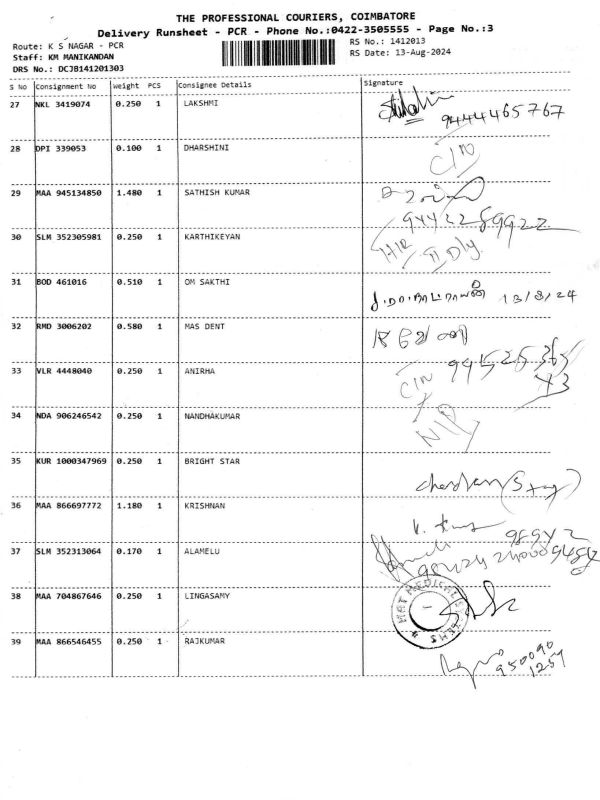 THE PROFESSIONAL COURIERS, COIMBATORE
Delivery Runsheet - PCR - Phone No.:0422-3505555 - Page No.:3
Route: K S NAGAR - PCR
RS No.: 1412013
Staff: KM MANIKANDAN
RS Date: 13-Aug-2024
DRS No.: DCJB141201303
S No Consignment No Weight PCS Consignee Details Signature
27 NKL 3419074 0.250 1 LAKSHMI
9444465767
28 DPI 339053 0.100 1 DHARSHINI
C/N
29 MAA 945134850 1.480 1 SATHISH KUMAR
9442289922
30 SLM 352305981 0.250 1 KARTHIKEYAN
H/R II Dly.
31 BOD 461016 0.510 1 OM SAKTHI
13/8/24
32 RMD 3006202 0.580 1 MAS DENT
33 VLR 4448040 0.250 1 ANIRHA
C/N
34 NDA 906246542 0.250 1 NANDHAKUMAR
N/P
35 KUR 1000347969 0.250 1 BRIGHT STAR
36 MAA 866697772 1.180 1 KRISHNAN
37 SLM 352313064 0.170 1 ALAMELU
38 MAA 704867646 0.250 1 LINGASAMY
39 MAA 866546455 0.250 1 RAJKUMAR
950090
1259